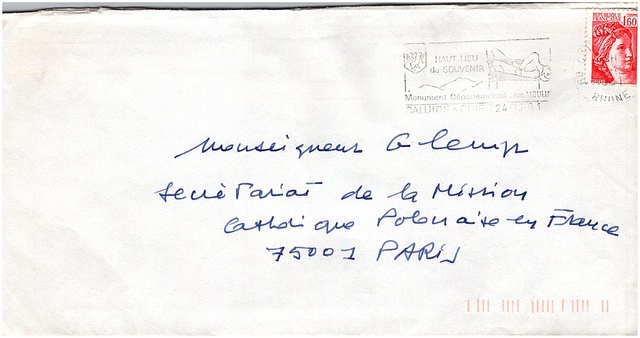 REPUBLIQUE FRANCAISE 1,60
HAUT-LIEU
du SOUVENIR
Monument Départemental Jean MOULIN
CALUIRE & CUIRE 24
RHONE
Monseigneur Glemp
Secrétariat de la Mission
Catholique Polonaise en France
75001 PARIS